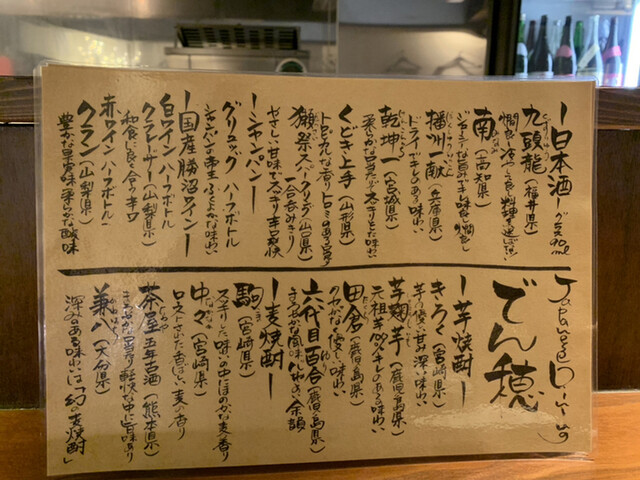 ー日本酒ーグラス90ml
九頭龍(福井県)
燗良し冷やして良し料理を選ばない
南(高知県)
播州一献(兵庫県)
ドライでキレのある味わい
乾坤一(宮城県)
柔らかな旨みでスッキリとした味わい
くどき上手(山形県)
獺祭スパークリング(山口県)
一合呑みきり
やさしい甘味でスッキリ辛口爽快
ーシャンパンー
グリュエット ハーフボトル
シャンパンの帝王 ふくよかな味わい
ー国産勝沼ワインー
白ワイン ハーフボトル
クラレーザー(山梨県)
和食に良く合う辛口
赤ワイン ハーフボトル
クラン(山梨県)
豊かな果実味柔らかな酸味
Japanese Dining
でん穂
ー芋焼酎ー
きろく(宮崎県)
芋の優しい甘み深い味わい
芋麹芋(鹿児島県)
元祖芋100%キレのある味わい
田倉(鹿児島県)
たくら
クセがなく優しい味わい
六代目百合(鹿児島県)
さわやかな風味しなやかな余韻
ー麦焼酎ー
駒(宮崎県)
スッキリした味わいの中ほのかな麦の香り
中々(宮崎県)
ローストされた香ばしい麦の香り
茶屋 五年古酒(熊本県)
ちゃや
まろやかな旨みで軽快な中に旨味あり
兼八(大分県)
かねはち
深みのある味わいは「幻の麦焼酎」